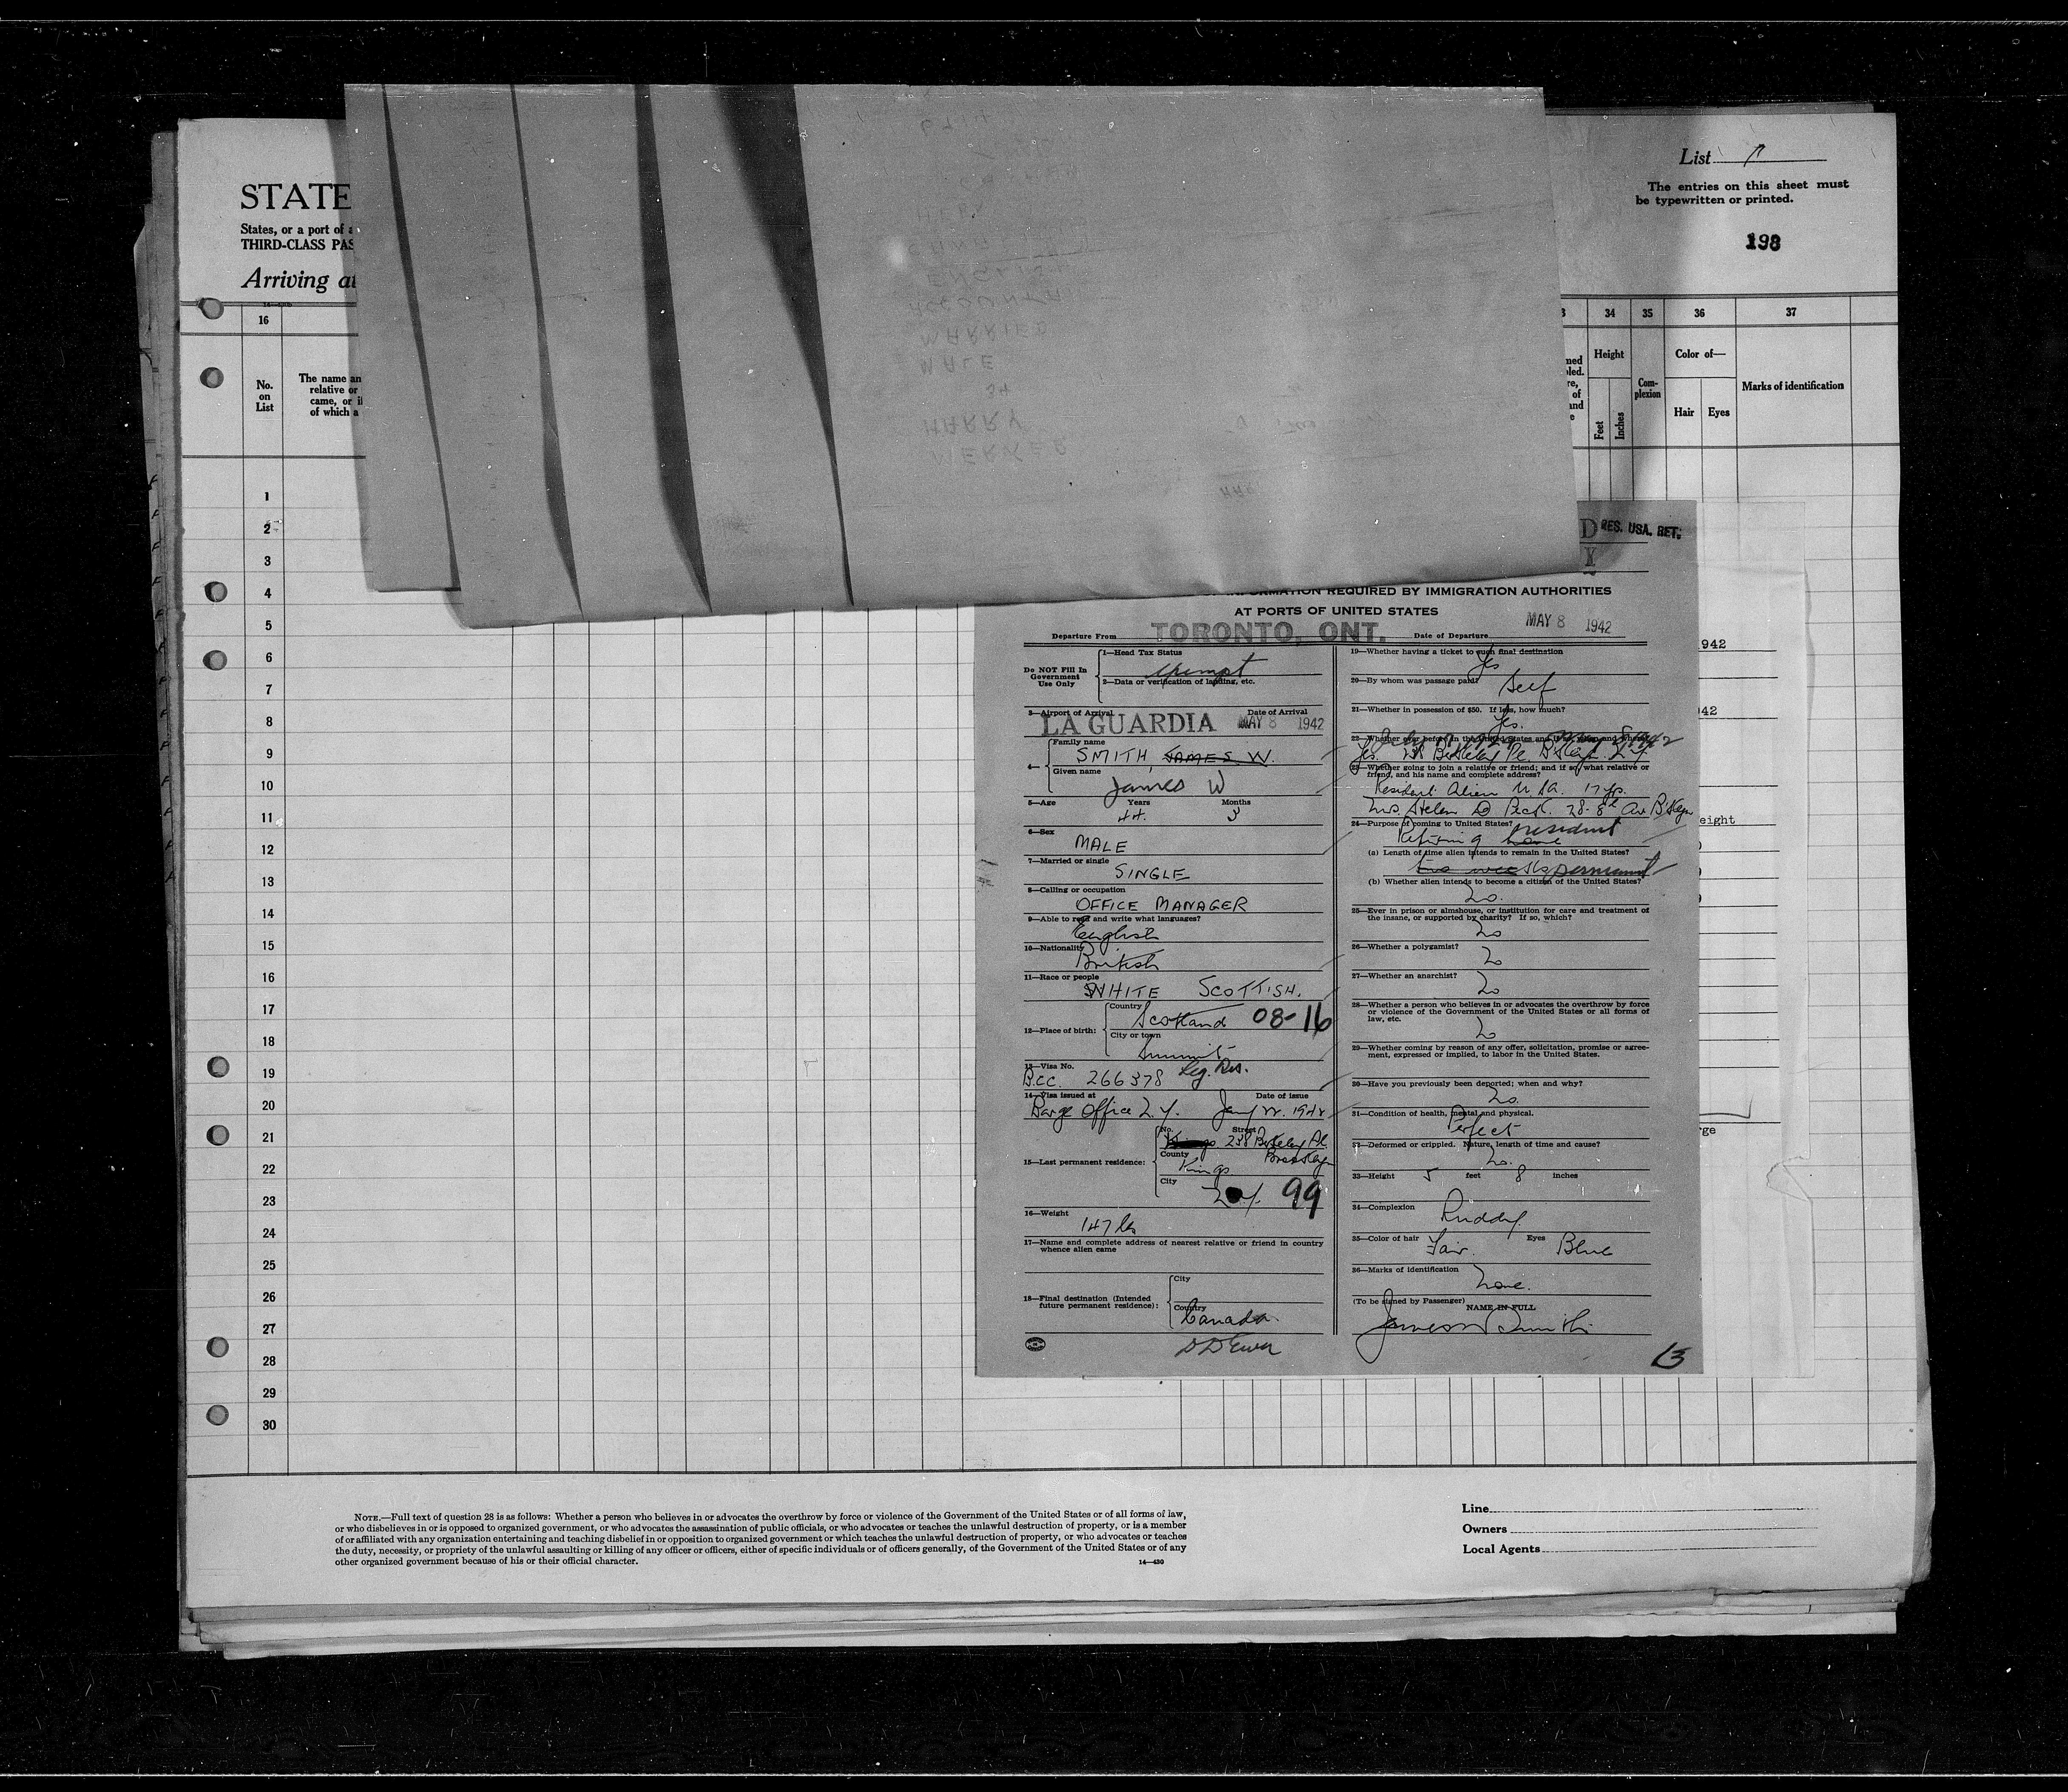 List
The entries on this sheet must
be typewritten or printed.
198
STATE
States, or a port of a
THIRD-CLASS PAS
Arriving at
16
34 35 36 37
No.
on
List
The name an
relative or
came, or if
of which a
Height
Feet
Inches
Com-
plexion
Color of—
Hair Eyes
Marks of identification
1
2
3
4
5
6
7
8
9
10
11
12
13
14
15
16
17
18
19
20
21
22
23
24
25
26
27
28
29
30
RES. USA. RET.
INFORMATION REQUIRED BY IMMIGRATION AUTHORITIES
AT PORTS OF UNITED STATES
Departure From TORONTO, ONT. Date of Departure MAY 8 1942
Do NOT Fill In
Government
Use Only
1—Head Tax Status
exempt
2—Data or verification of landing, etc.
3—Airport of Arrival Date of Arrival
LA GUARDIA MAY 8 1942
4—
Family name
SMITH, JAMES W.
Given name
James W
5—Age Years Months
44. 3
6—Sex
MALE
7—Married or single
SINGLE
8—Calling or occupation
OFFICE MANAGER
9—Able to read and write what languages?
English
10—Nationality
British
11—Race or people
WHITE SCOTTISH.
12—Place of birth:
Country
Scotland 08-16
City or town
Summit
13—Visa No.
B.C.C. 266378 Leg. Res.
14—Visa issued at Date of issue
Barge Office N.Y.
15—Last permanent residence:
No. Street
Kings 238 Berkeley Pl.
County Brooklyn
Kings
City
N.Y. 99
16—Weight
147 lbs
17—Name and complete address of nearest relative or friend in country
whence alien came
18—Final destination (Intended
future permanent residence):
City
Country
Canada
19—Whether having a ticket to such final destination
Yes
20—By whom was passage paid?
Self
21—Whether in possession of $50. If less, how much?
Yes.
22—Whether ever before in the United States and if so, when and where?
Yes. 238 Berkeley Pl. Bklyn. N.Y.
23—Whether going to join a relative or friend; and if so, what relative or
friend, and his name and complete address?
Resident Alien U.S.A. 17 yrs.
Mrs. Helen D Peck. 28-8th Av Bklyn
24—Purpose of coming to United States?
Returning home resident
(a) Length of time alien intends to remain in the United States?
two weeks permanent
(b) Whether alien intends to become a citizen of the United States?
No.
25—Ever in prison or almshouse, or institution for care and treatment of
the insane, or supported by charity? If so, which?
No
26—Whether a polygamist?
No
27—Whether an anarchist?
No
28—Whether a person who believes in or advocates the overthrow by force
or violence of the Government of the United States or all forms of
law, etc.
No
29—Whether coming by reason of any offer, solicitation, promise or agree-
ment, expressed or implied, to labor in the United States.
30—Have you previously been deported; when and why?
No.
31—Condition of health, mental and physical.
Perfect
32—Deformed or crippled. Nature, length of time and cause?
No.
33—Height 5 feet 8 inches
34—Complexion
Ruddy
35—Color of hair Fair. Eyes Blue
36—Marks of identification
None.
(To be signed by Passenger) NAME IN FULL
James W Smith
13
942
42
eight
ge
NOTE.—Full text of question 28 is as follows: Whether a person who believes in or advocates the overthrow by force or violence of the Government of the United States or of all forms of law,
or who disbelieves in or is opposed to organized government, or who advocates the assassination of public officials, or who advocates or teaches the unlawful destruction of property, or is a member
of or affiliated with any organization entertaining and teaching disbelief in or opposition to organized government or which teaches the unlawful destruction of property, or who advocates or teaches
the duty, necessity, or propriety of the unlawful assaulting or killing of any officer or officers, either of specific individuals or of officers generally, of the Government of the United States or of any
other organized government because of his or their official character.
14—430
Line
Owners
Local Agents